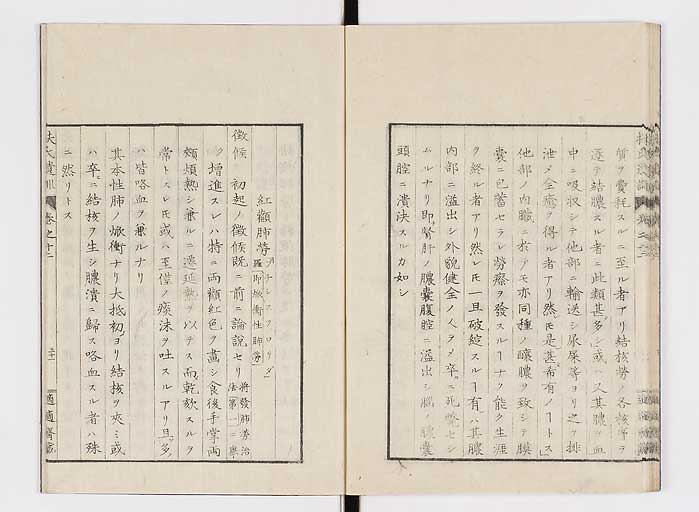 質ヲ費耗スルニ至ル者アリ結核勞ノ各核等ヲ
逐テ結膿スル者ニ此類甚多シ或ハ又其膿ヲ血
中ニ吸収シテ他部ニ輸送シ尿屎等ヨリ之ヲ排
泄メ全癒ヲ得ル者アリ然モ是甚希有ノヿトス
他部ノ内臓ニ於テモ亦同種ノ釀膿ヲ致シテ膜
嚢ニ包蓄セラレ勞瘵ヲ發スルヿナク能ク生涯
ヲ終ル者アリ然レモ一旦破綻スルヿ有ハ其膿
内部ニ溢出シ外貌健全ノ人ヲメ卒ニ死斃セシ
ムルナリ即腎肝ノ膿嚢腹腔ニ溢出シ腦ノ膿嚢
頭腔ニ潰決スルカ如シ
紅顴肺勞
徴候 初起ノ徴候既ニ前ニ論説セリ
ク増進スレハ特ニ両顴紅色ヲ畫シ食後手掌両
頬煩熱シ兼ルニ遷延熱ヲ以テス而乾欬スルヲ
常トスレモ或ハ至僅ノ痰沫ヲ吐スルアリ且多
ハ皆咯血ヲ兼ルナリ
其本性肺ノ焮衝ナリ大抵初ヨリ結核ヲ夾ミ或
ハ卒ニ結核ヲ生シ膿潰ニ歸ス咯血スル者ハ殊
ニ然リトス
扶氏遺訓 巻之十二
適適齋藏